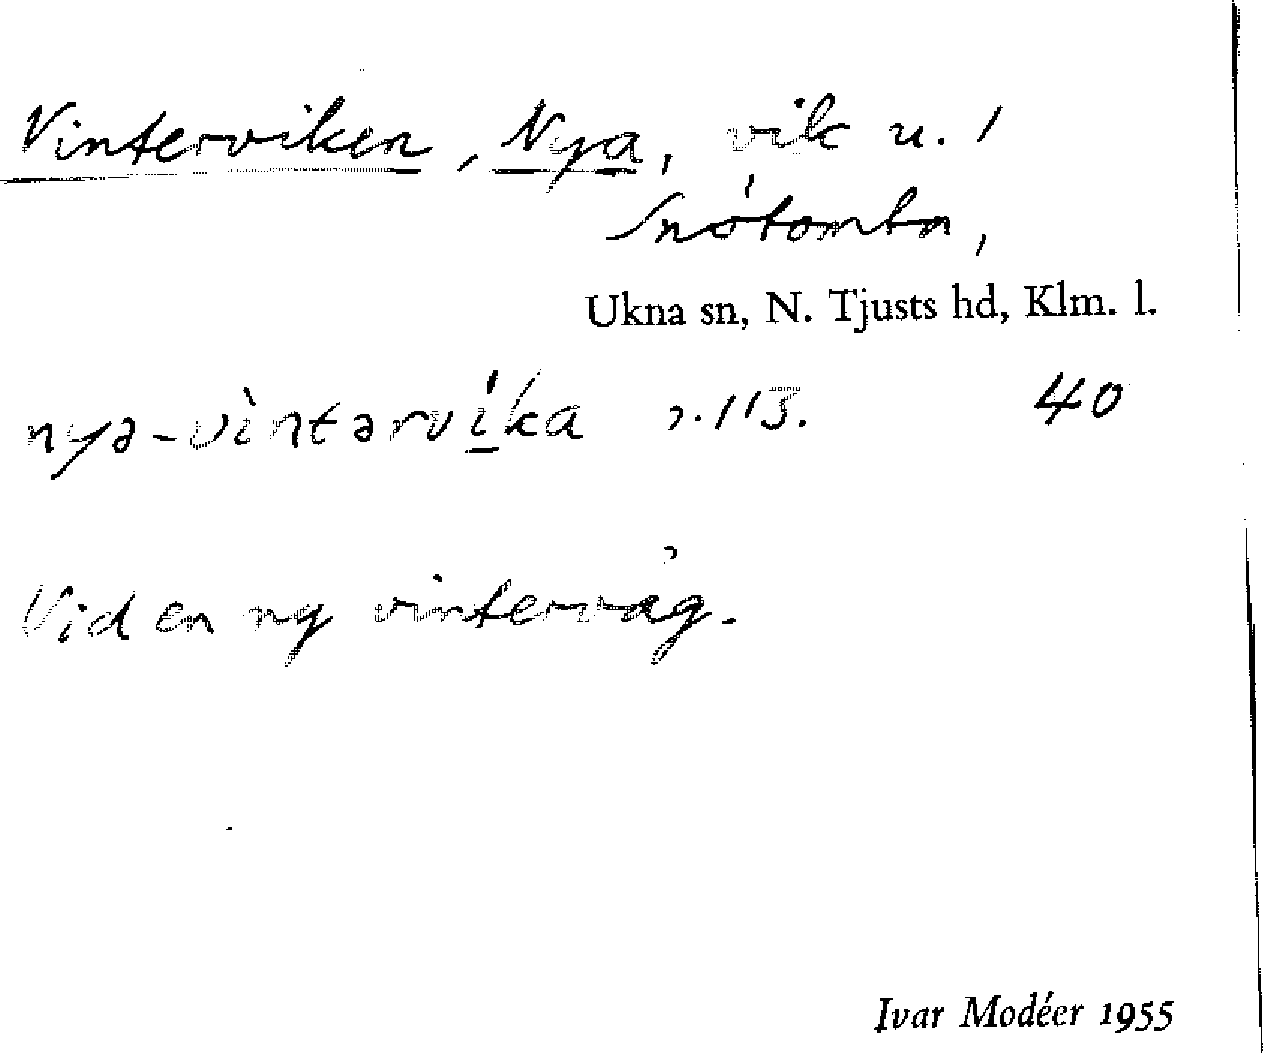 Vinterviken, Nya, vik u. 1
Snötomta,
Ukna sn, N. Tjusts hd, Klm. l.
nyə-vìntərvíka 2.115. 40
Vid en ny vinterväg.
Ivar Modéer 1955